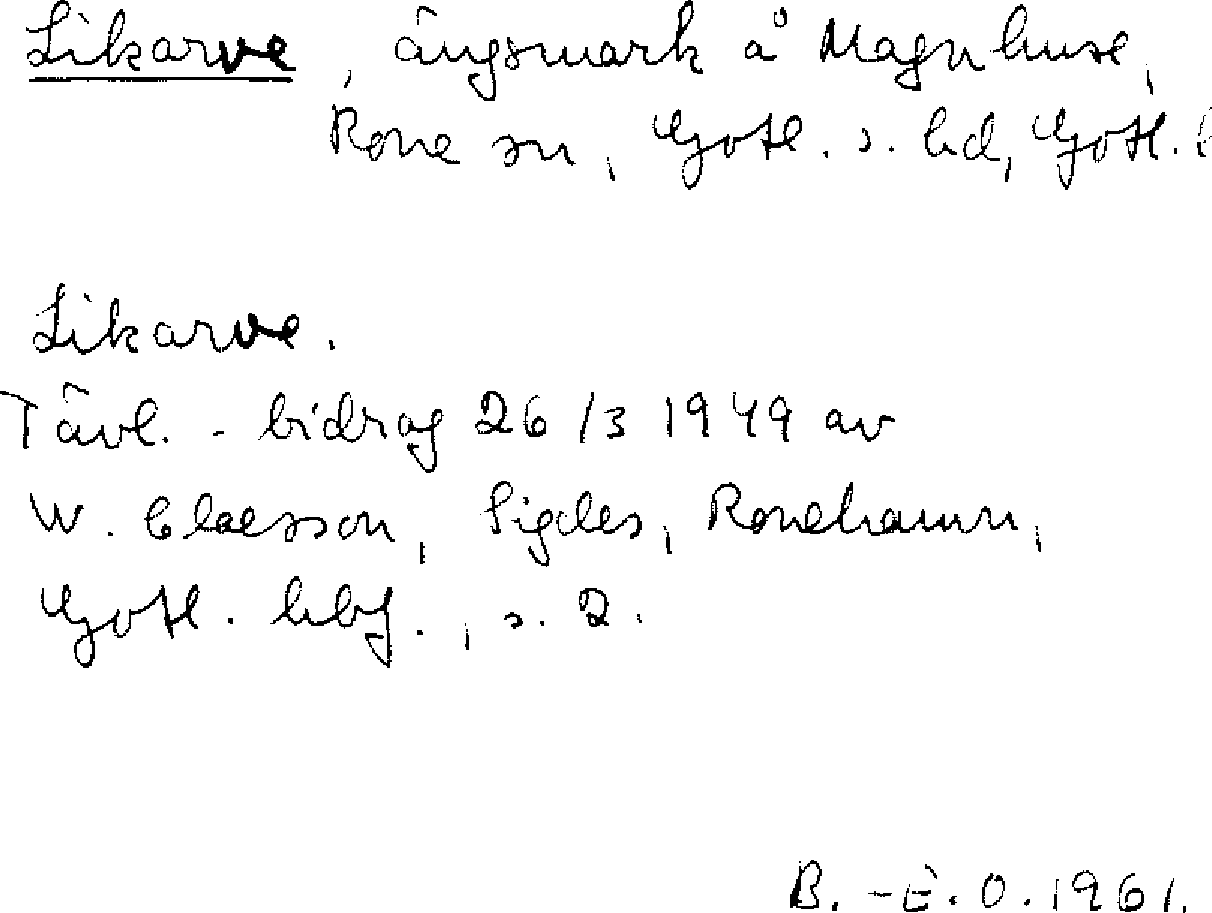 Likarve, ängsmark å Magnhuse,
Rone sn, Gotl. s. hd, Gotl.
Likarve.
Tävl. - bidrag 26/3 1949 av
W. Claesson, Sigdes, Ronehamn,
Gotl. hbf., s. 2.
B. -E. O. 1961.